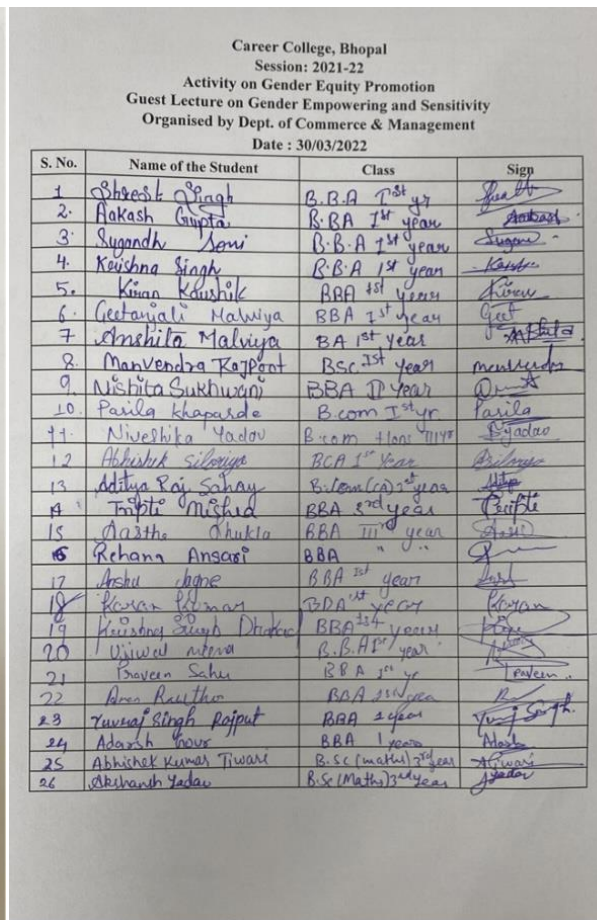 Career College, Bhopal
Session: 2021-22
Activity on Gender Equity Promotion
Guest Lecture on Gender Empowering and Sensitivity
Organised by Dept. of Commerce & Management
Date : 30/03/2022
S. No. Name of the Student Class Sign
1 Shresth Singh B.B.A Ist yr
2. Aakash Gupta B.BA 1st year Aakash
3. Sugandh Soni B.B.A 1st year
4. Krishna Singh B.B.A 1st year
5. Kiran Kaushik BBA 1st year Kiran
6. Geetanjali Malviya BBA 1st year Geet
7 Anshita Malviya BA 1st year
8. Manvendra Rajpoot BSc. Ist year
9. Nishita Sukhwani BBA II Year
10. Parila Khaparde B.com Ist yr Parila
11. Niveshika Yadav B.com Hons III yr Yadav
12 Abhishek BCA 1st Year
13 Aditya Raj Sahay B.Com(CA) year
14 Tripti Mishra BBA 3rd year Tripti
15 Aastha Shukla BBA IIIrd year
16 Rehana Ansari BBA " "
17 Anshu BBA Ist year
18 Karan Kumar BBA 1st year Karan
19 Krishna Singh BBA 1st year
20 Ujjwal B.B.A 1st year
21 Praveen Sahu BBA 1st yr Praveen
22 BBA
23 Yuvraj Singh Rajput BBA 1 year Yuvraj Singh
24 Adarsh BBA 1 year Adarsh
25 Abhishek Kumar Tiwari B.Sc (maths) 3rd year ATiwari
26 Akshansh Yadav B.Sc (Maths) 3rd Year Ayadav